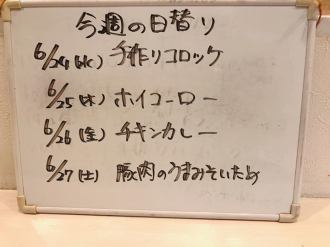 今週の日替り
6/24(水) 手作りコロッケ
6/25(木) ホイコーロー
6/26(金) チキンカレー
6/27(土) 豚肉のうまみそいため